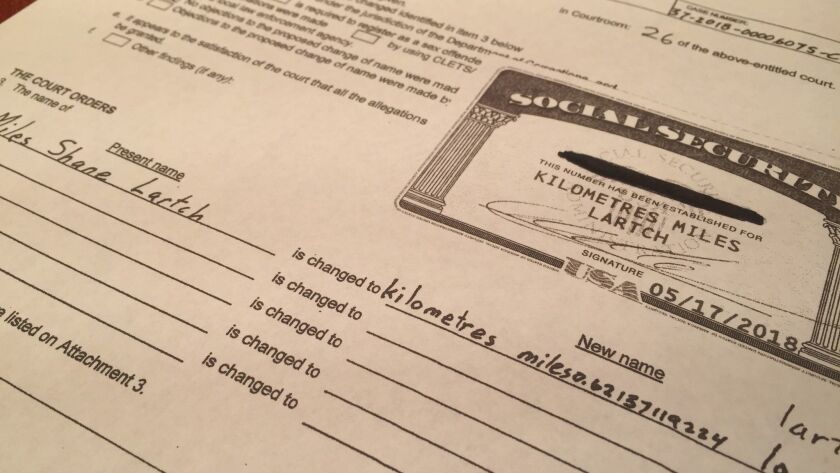 CASE NUMBER:
37-2018-00006075-C
in Courtroom: 26 of the above-entitled court.
changed identified in item 3 below
under the jurisdiction of the Department
is required to register as a sex offende
by using CLETS/
local law enforcement agency.
No objections to the proposed change of name were mad
Objections to the proposed change of name were made b
e. It appears to the satisfaction of the court that all the allegations
be granted.
f. Other findings (if any):
THE COURT ORDERS
3. The name of
Present name
Miles Shane Lartch
SOCIAL SECURITY
THIS NUMBER HAS BEEN ESTABLISHED FOR
KILOMETRES MILES
LARTCH
SIGNATURE
USA 05/17/2018
New name
is changed to kilometres miles0.62137119224 lart
is changed to
is changed to
is changed to
is changed to
listed on Attachment 3.